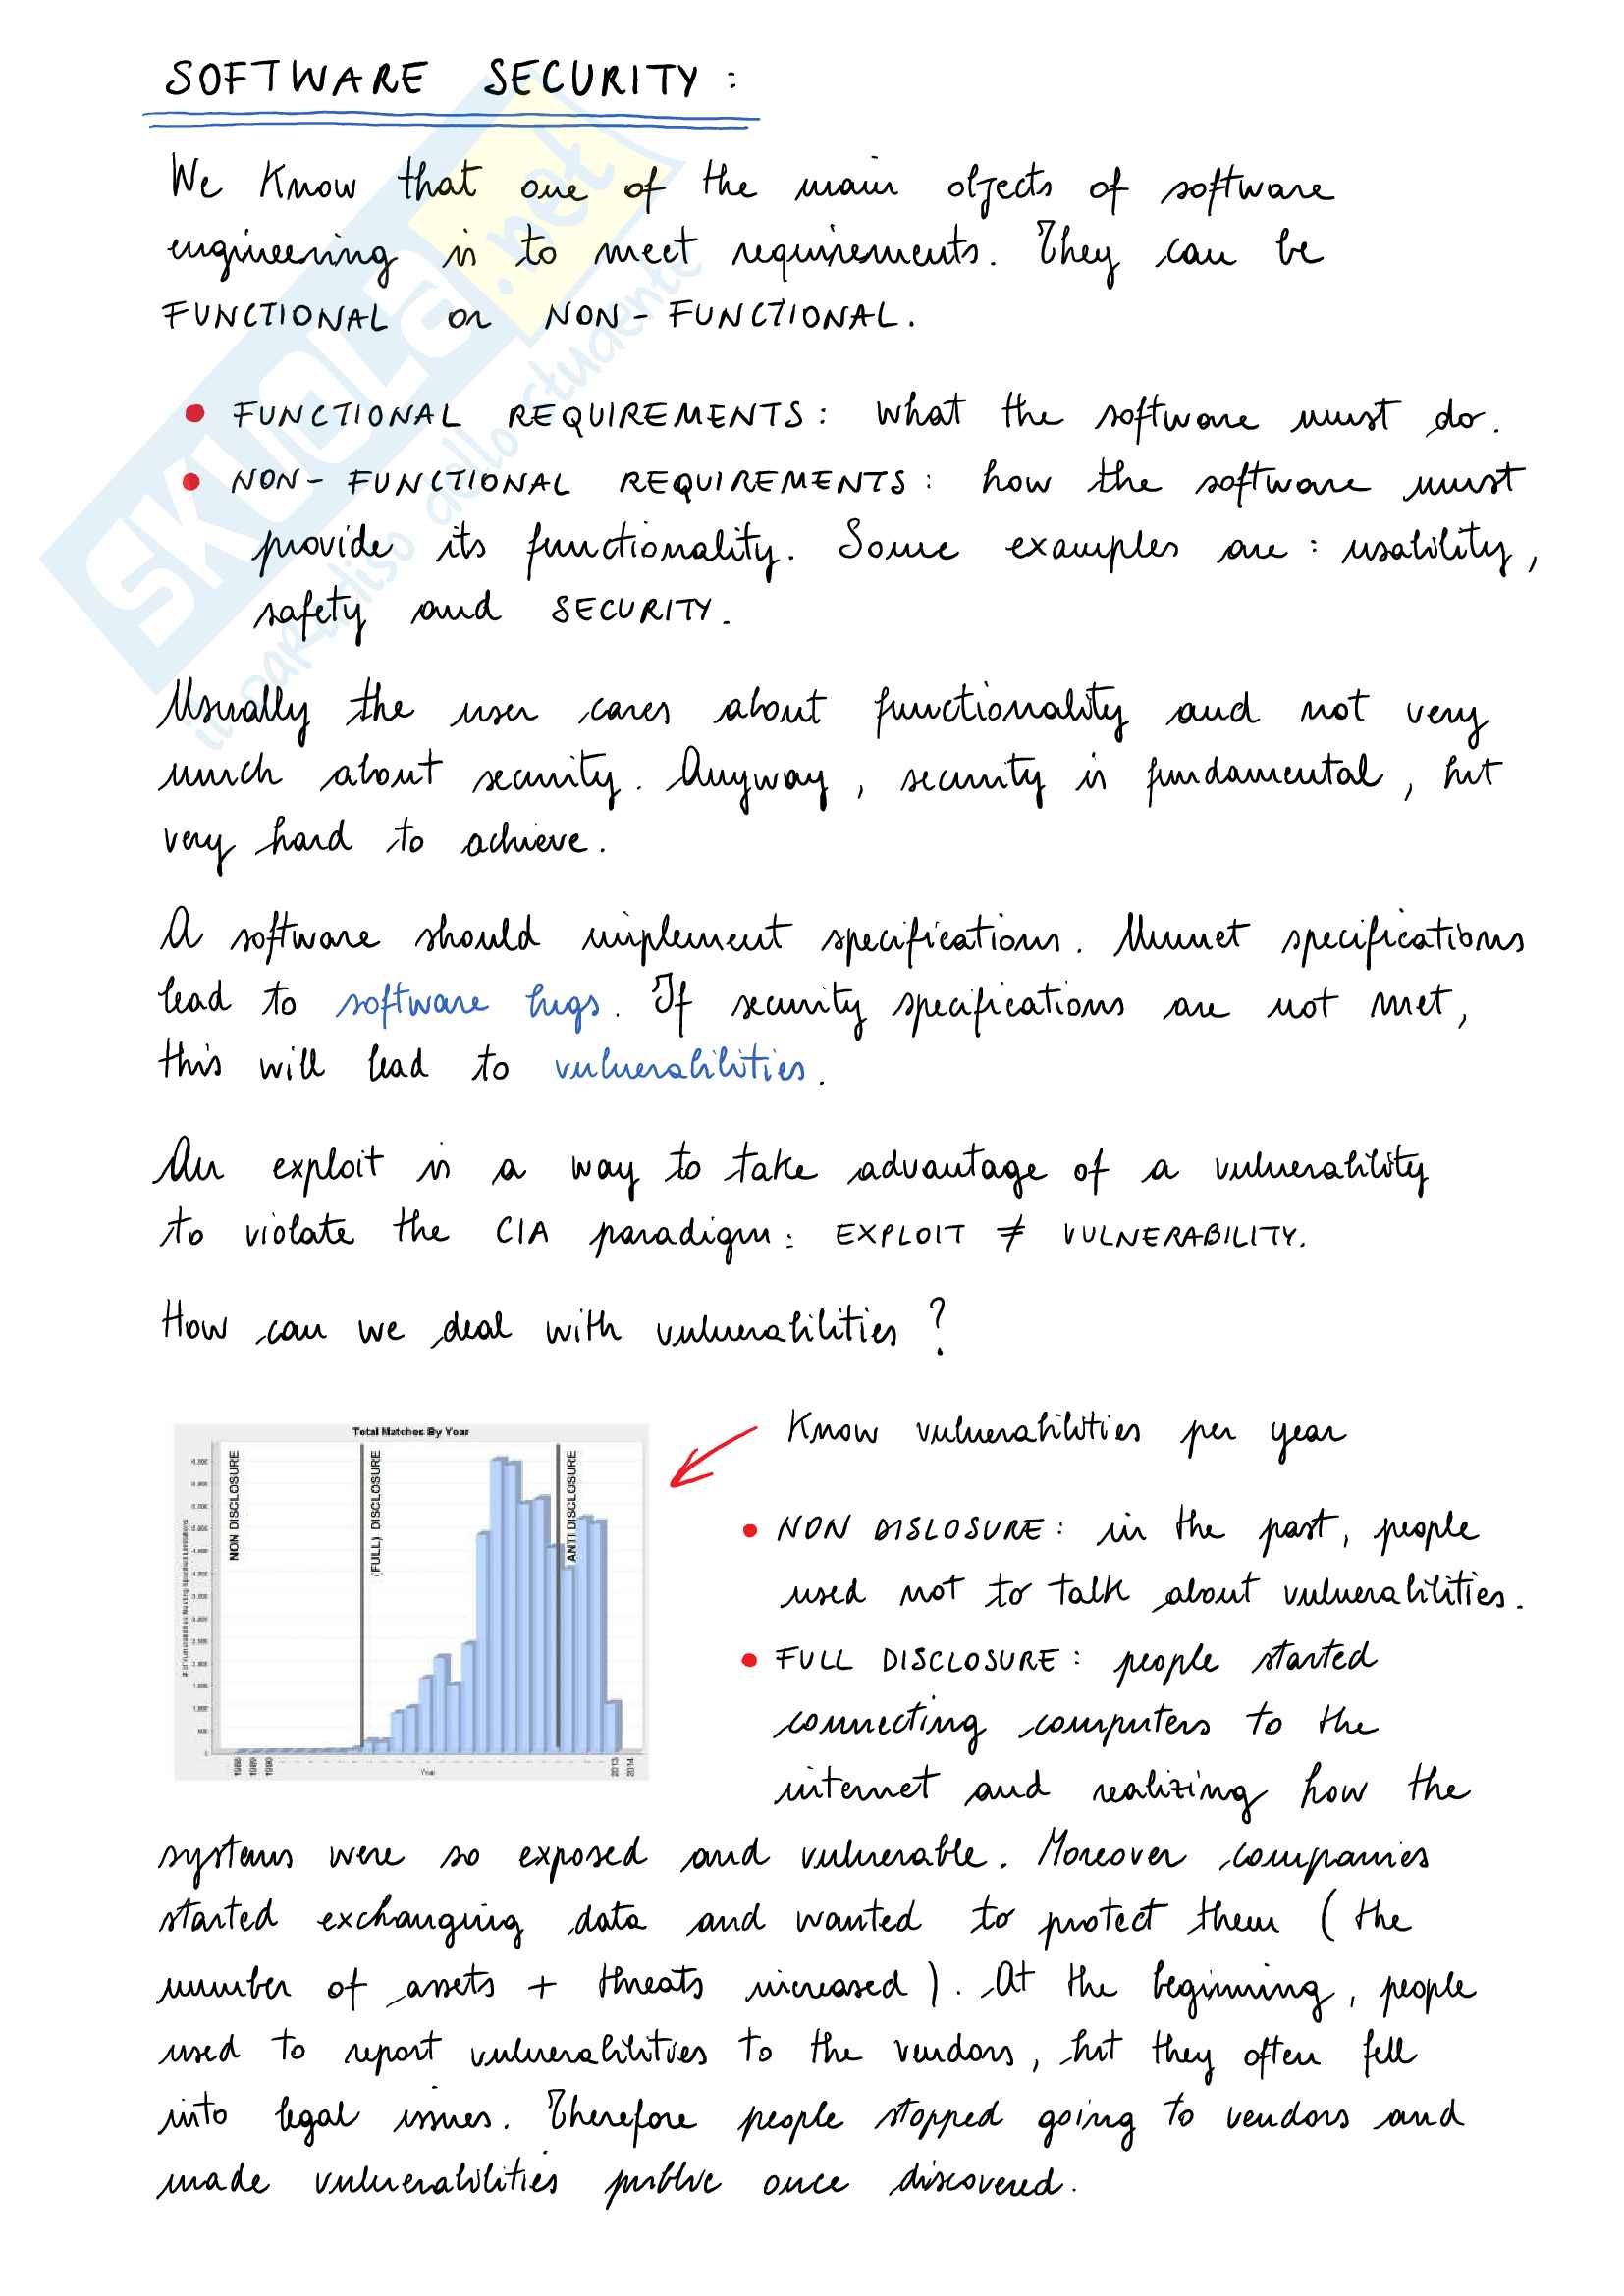 SOFTWARE SECURITY:
We Know that one of the main objects of software
engineering is to meet requirements. They can be
FUNCTIONAL or NON-FUNCTIONAL.
• FUNCTIONAL REQUIREMENTS: what the software must do.
• NON-FUNCTIONAL REQUIREMENTS: how the software must
provide its functionality. Some examples are: usability,
safety and SECURITY.
Usually the user cares about functionality and not very
much about security. Anyway, security is fundamental, but
very hard to achieve.
A software should implement specifications. Unmet specifications
lead to software bugs. If security specifications are not met,
this will lead to vulnerabilities.
An exploit is a way to take advantage of a vulnerability
to violate the CIA paradigm: EXPLOIT ≠ VULNERABILITY.
How can we deal with vulnerabilities?
Total Matches By Year
NON DISCLOSURE
(FULL) DISCLOSURE
ANTI DISCLOSURE
Year
1988
1989
1990
2013
2014
Know vulnerabilities per year
• NON DISLOSURE: in the past, people
used not to talk about vulnerabilities.
• FULL DISCLOSURE: people started
connecting computers to the
internet and realizing how the
systems were so exposed and vulnerable. Moreover companies
started exchanging data and wanted to protect them (the
number of assets + threats increased). At the beginning, people
used to report vulnerabilities to the vendors, but they often fell
into legal issues. Therefore people stopped going to vendors and
made vulnerabilities public once discovered.
SKUOLA.net
il paradiso dello studente